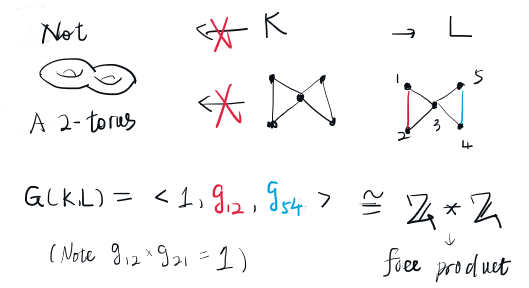 Not K → L
A 2-torus
1 5
3
2 4
G(K,L) = < 1, g₁₂, g₅₄ > ≅ ℤ * ℤ
(Note g₁₂ × g₂₁ = 1)
free product